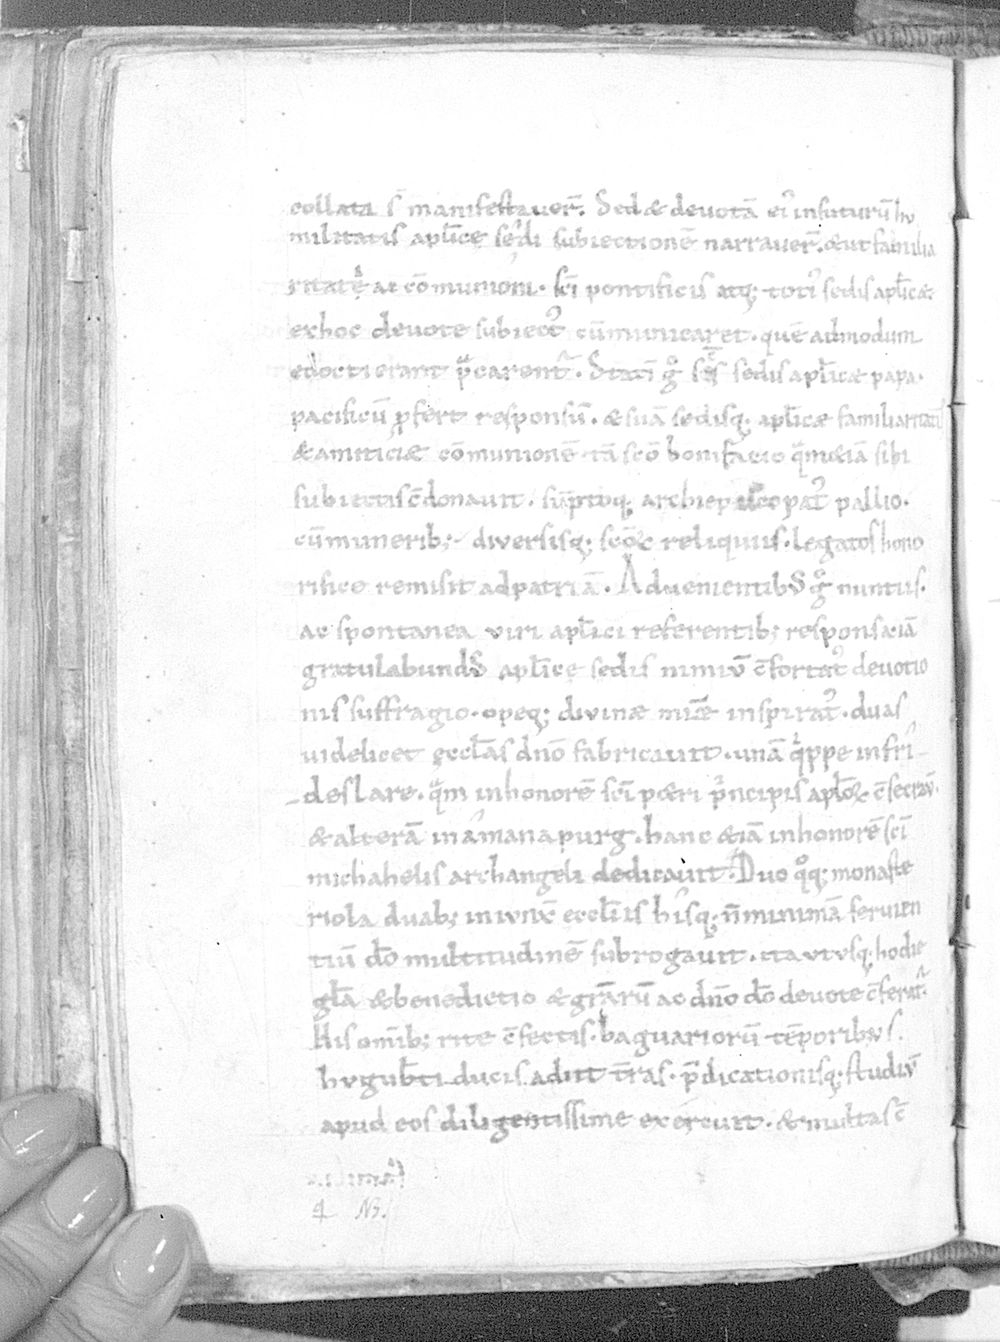 collata s̄ manifestauer̄. Sed & deuotā ei᷒ infuturū hu
militatis apl̄icę sedi subiectionē narrauer̄. & ut familia
ritatę ac cōmunioni. sc̄i pontificis atq; toti᷒ sedis apl̄icæ.
exhoc deuote subiect᷒ cūmunicaret. quē admodum
edocti erant p̄carent᷒. Statī g° sedis apl̄icæ papa.
pacificū ꝓfert responsū. & suā sedisq; apl̄icæ familiaritatē
& amiticiæ cōmunionē tā scō bonifacio quā &iā sibi
subiectis c̄donauit. sūptoq; archiepiscopat᷒ pallio.
cūmunerib; diuersisq; scōꝝ reliquiis. legatos hono
rifice remisit adpatriā. Aduenientibus g° nuntiis.
ac spontanea uiri apl̄ici referentib; responsa. iā
gratulabundus apl̄ice sedis nimiū c̄fortat᷒ deuotio
nis suffragio. opeq; diuinæ mis̄cdæ inspirat᷒. duas
uidelicet ęccl̄as dnō fabricauit. unā quippe in fri
deslare. quā inhonorē sc̄i p&ri p̄ncipis aplōꝝ c̄secrau̅.
& alterā in amanapurg. hanc &iā inhonorē sc̄i
michahelis archangeli dedicauit. Duo q°q; monaste
riola duab; iniunx̄ eccl̄iis hisq; n̄minimā seruien
tiū dō multitudinē subrogauit. ita ut usq; hodie
gl̄a & benedictio & gr̄arū ac dnō dō deuote c̄ferat᷒.
His omīb; rite c̄fectis. baguariorū tēporibus.
hugub̄ti ducis adiit t̄ras. p̄dicationisq; studiū
apud eos diligentissime exercuit. & multas c̄